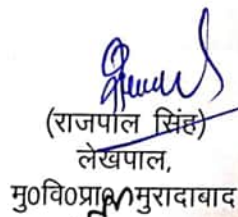 (राजपाल सिंह)
लेखपाल,
मु०वि०प्रा० मुरादाबाद